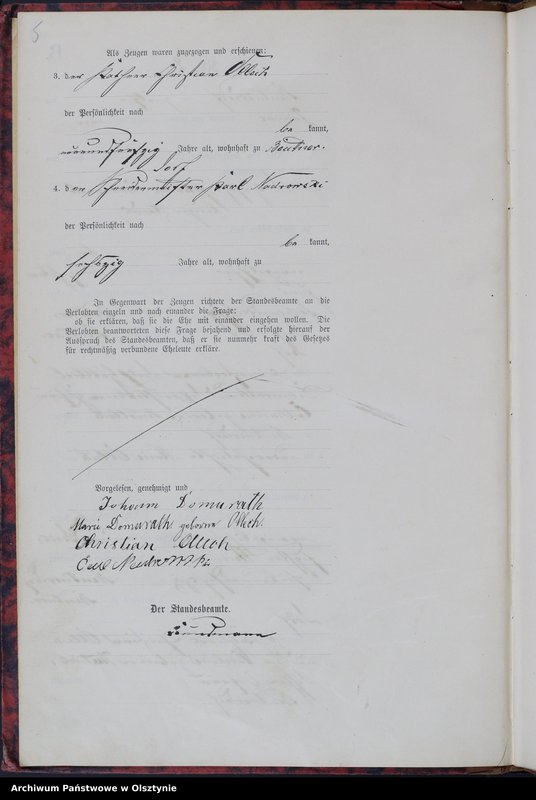 5
Als Zeugen waren zugezogen und erschienen:
3. der Käthner Christian Olloch
der Persönlichkeit nach
be kannt,
neunundfünfzig Jahre alt, wohnhaft zu Beutner-
dorf
4. der Schneidermeister Karl Nadrowski
der Persönlichkeit nach
be kannt,
sechszig Jahre alt, wohnhaft zu
In Gegenwart der Zeugen richtete der Standesbeamte an die
Verlobten einzeln und nach einander die Frage:
ob sie erklären, daß sie die Ehe mit einander eingehen wollen. Die
Verlobten beantworteten diese Frage bejahend und erfolgte hierauf der
Ausspruch des Standesbeamten, daß er sie nunmehr kraft des Gesetzes
für rechtmäßig verbundene Eheleute erkläre.
Vorgelesen, genehmigt und
Johann Domurath
Marie Domurath geborene Olloch
Christian Olloch
Carl Nadrowski
Der Standesbeamte.
Archiwum Państwowe w Olsztynie